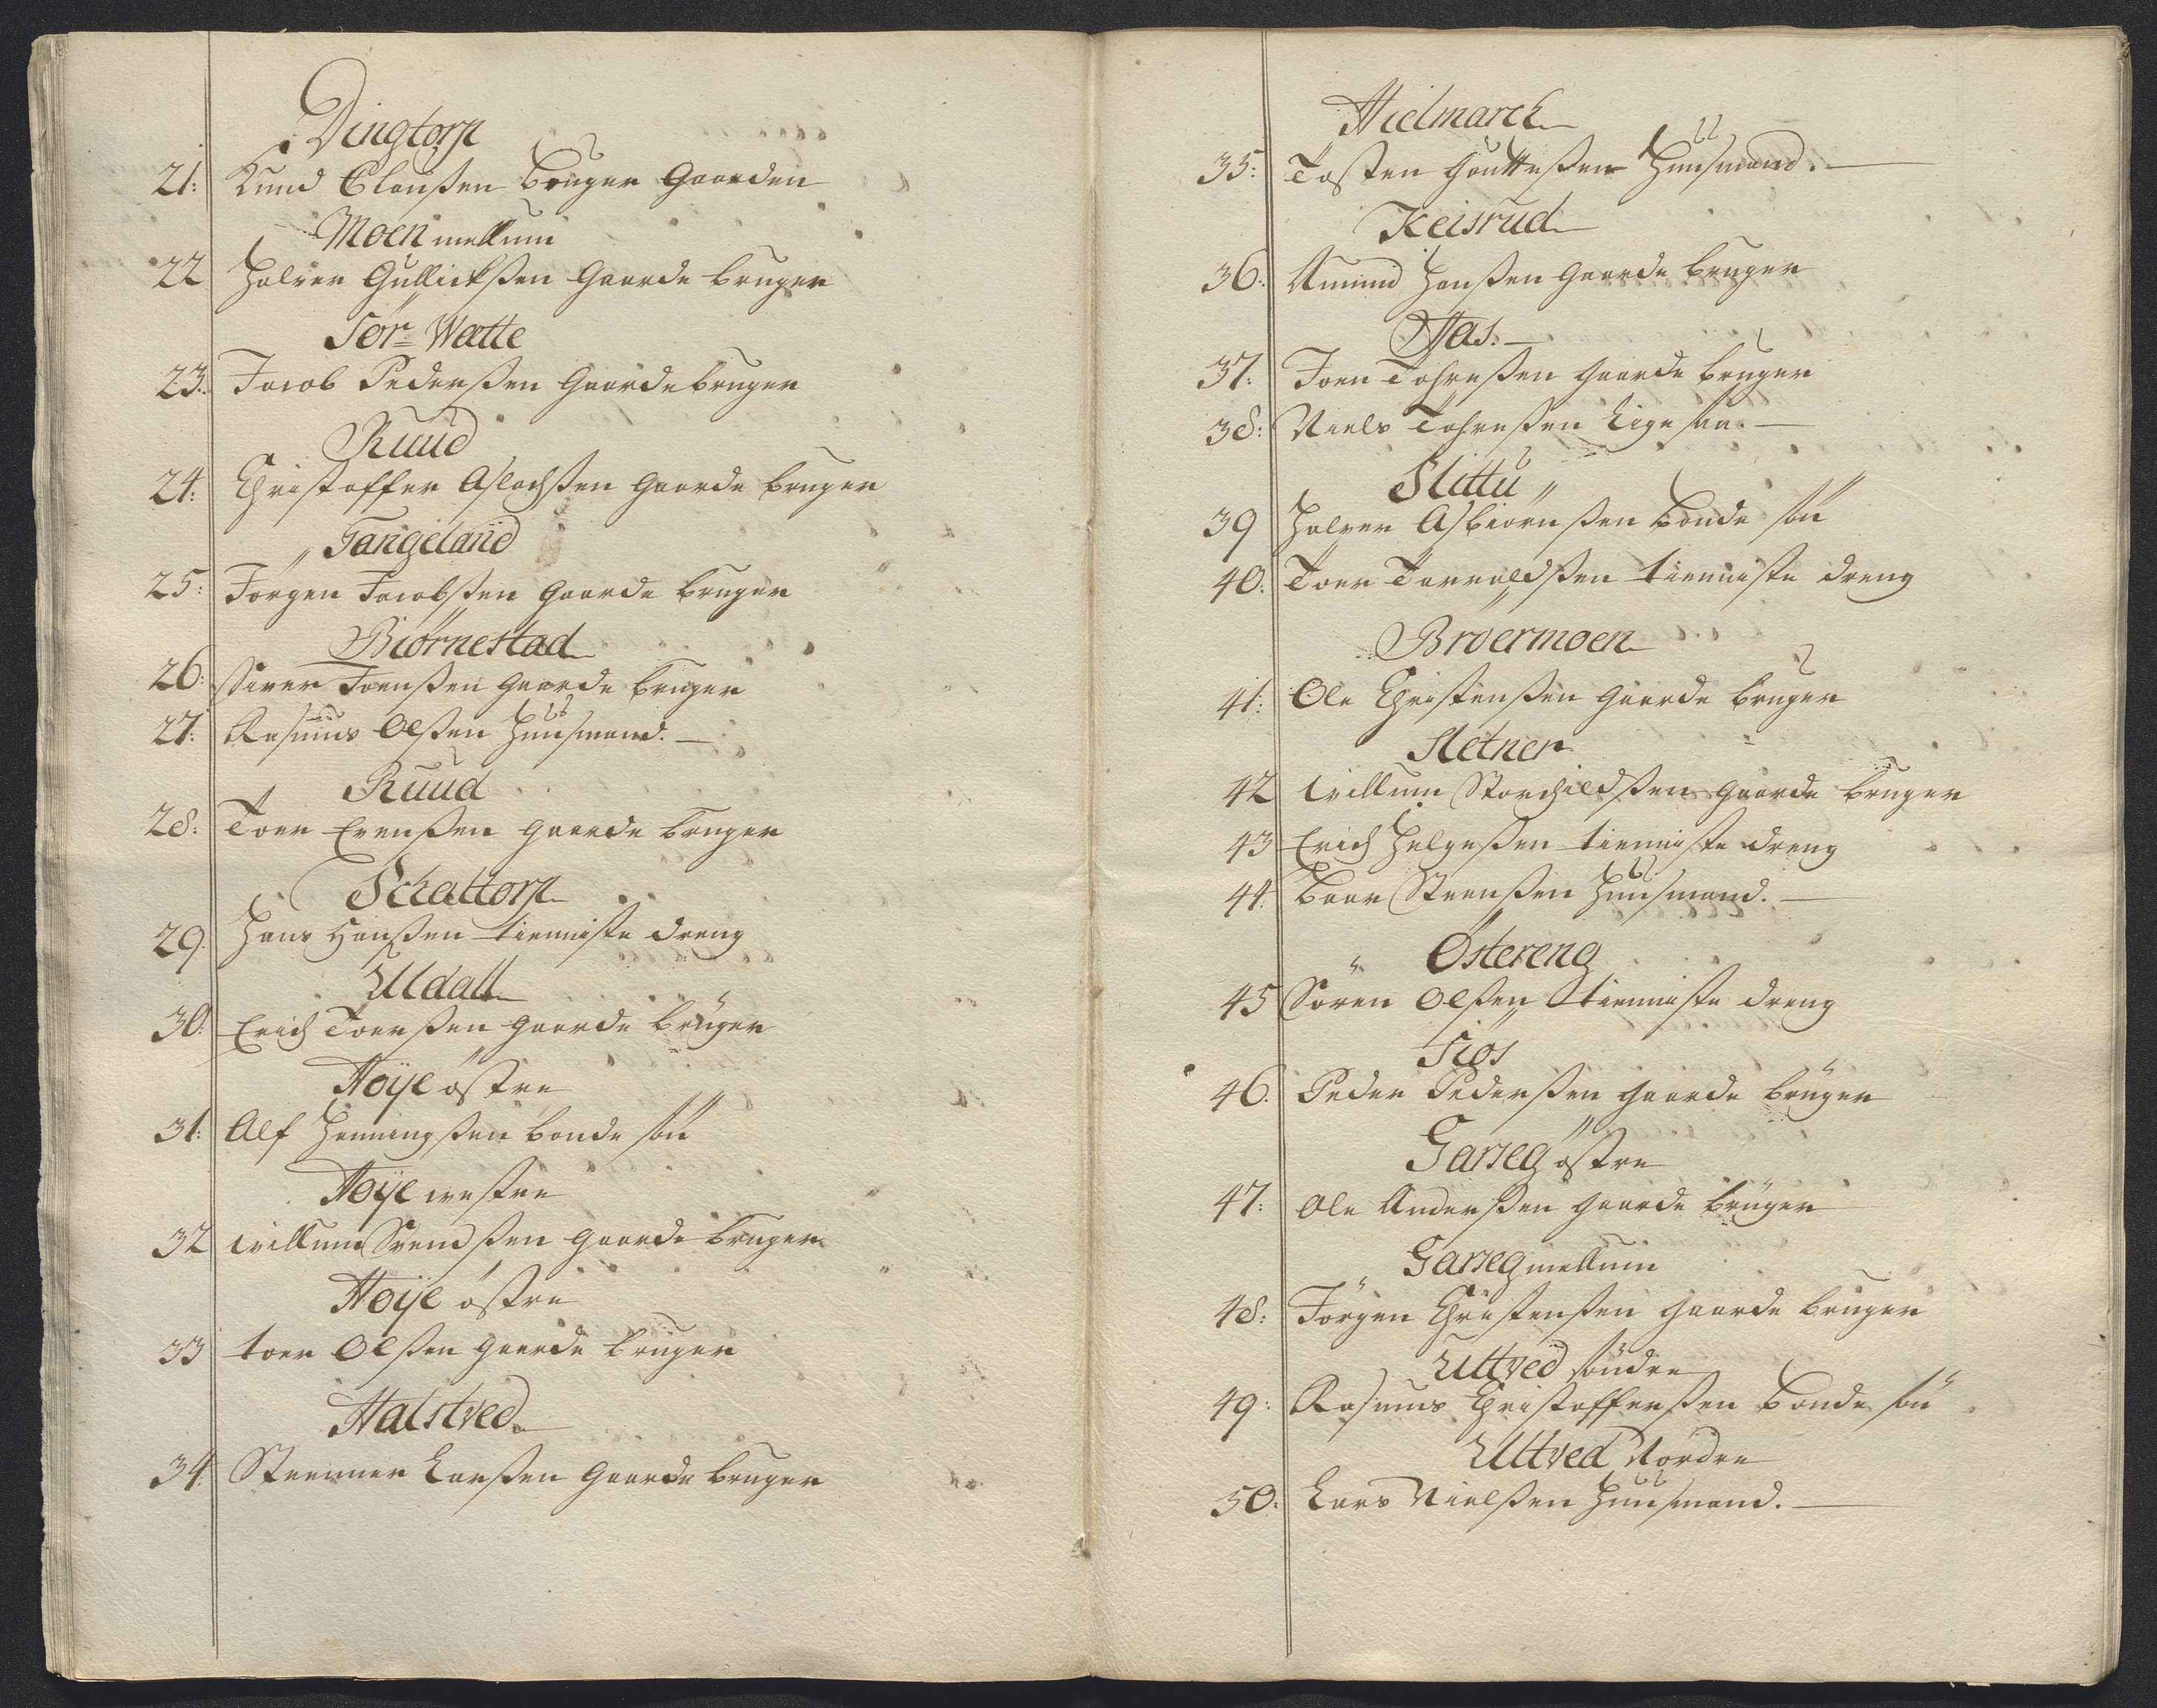 Dingtorp
21: Knud Clausßen bruger Gaarden
Moen mellum
22 Halvor Gullichßen Gaarde bruger
Sør= Wætte
23. Jacob Pederßen Gaardebruger
Ruud
24: Christoffer Aslachßen Gaarde bruger
Tangeland
25: Jørgen Jacobßen Gaarde bruger
Biørnestad
26: Siver Joenßen Gaarde bruger
27: Rasmus Olßen Huusmand. —
Ruud
28: Toer Evenßen Gaarde bruger
Schattorp
29. Hans Hanßen tienniste dreng
Uldall
30. Erich Toerßen Gaarde bruger
Høÿe østre
31: Alf Henningßen bonde søn
Høÿe westre
32 willum Svendßen Gaarde bruger
Høÿe østre
33 toer Olßen Gaarde bruger
Halstved
34. Steener Larßen Gaarde bruger
Hielmarck
35: Tosten Goutteßen Huusmand. —
Keisrud
36: Amund Hanßen Gaarde bruger
Aas. —
37: Joen Tohreßen Gaarde bruger
38: Niels Tohreßen Lige saa. —
Slittu
39 Halvor Asbiørnßen bonde søn
40: Toer Torvaldßen tienniste dreng
Broermoen
41: Ole Christenßen Gaarde bruger
Sletner
42 willum Storchildßen Gaarde bruger
43 Erich Helgeßen tienniste dreng
44. Baar Steenßen Huusmand. —
Østereng
45 Søren Olßen tienniste dreng
Fiøs
46. Peder Pederßen Gaarde bruger
Garseg østre
47: Ole Anderßen Gaarde bruger
Garseg mellum
48: Jørgen Christenßen Gaarde bruger
Uttved søndre
49: Rasmus Christofferßen bonde søn
Uttved Nordre
50: Lars Nielßen Huusmand. —